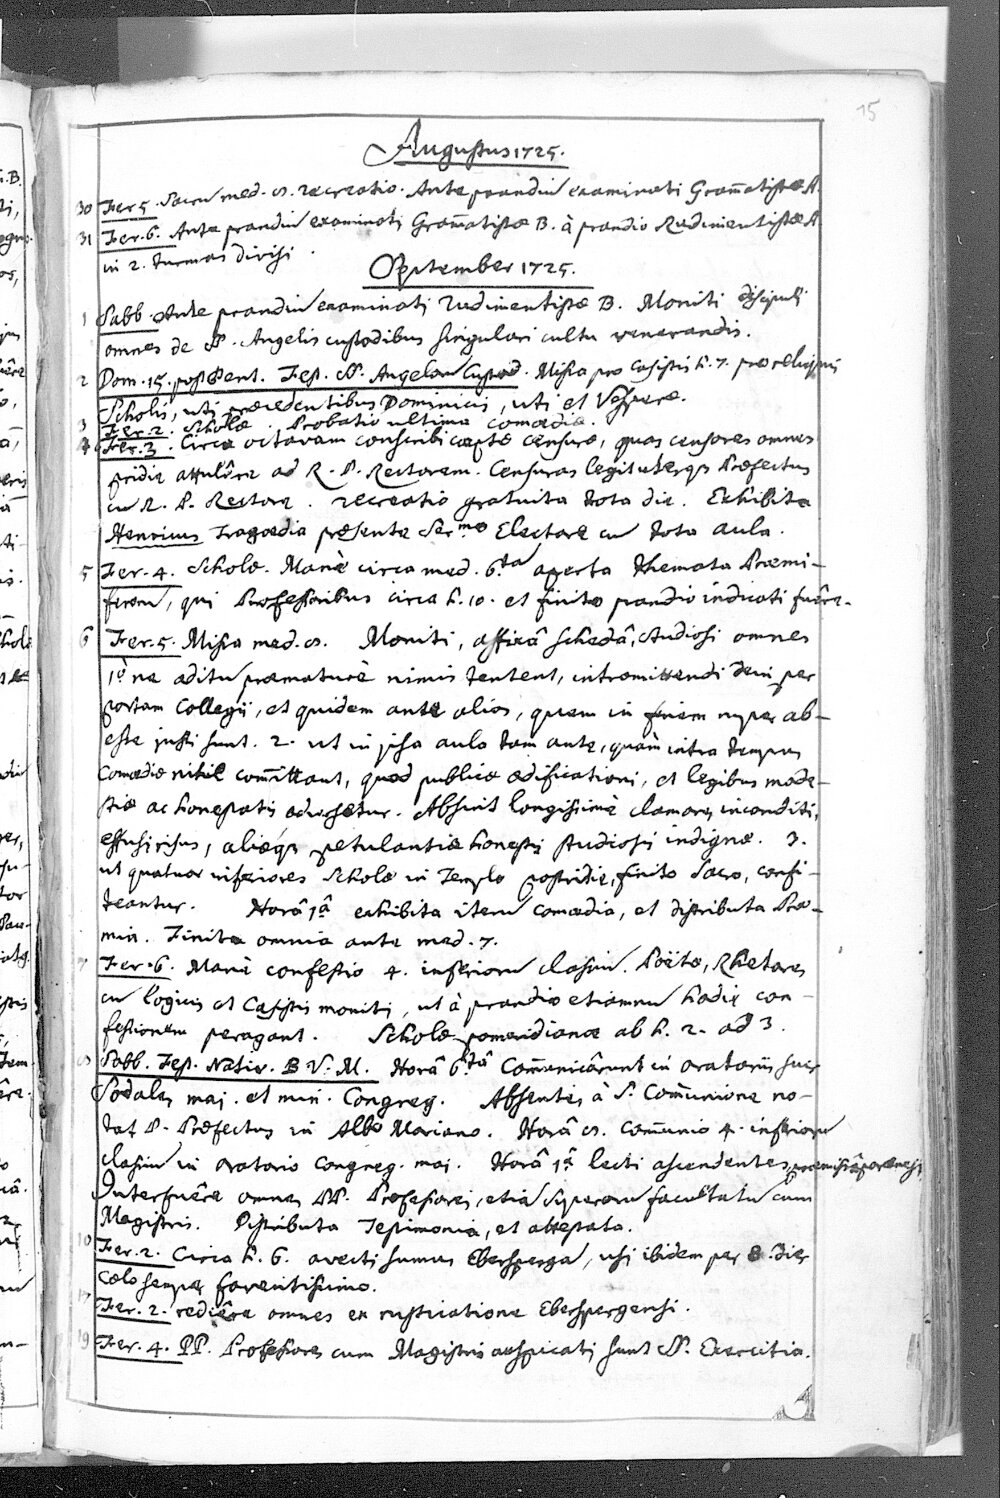 15
Augustus 1725.
30 Fer. 5. Sacru med. 8. recreatio. Ante prandiu examinati Gram̄atistæ A.
31 Fer. 6. Ante prandiu examinati Gram̄atistæ B. à prandio Rudimentistæ A
in 2. turmas divisi.
September 1725.
1 Sabb. Ante prandiu examinati Rudimentistæ B. Moniti discipuli
omnes de SS. Angelis custodibus singulari cultu venerandis.
2 Dom. 15. post Pent. Fes. SS. Angeloru Custod. Missa pro Casistis h. 7. pro reliquis
Scholis, uti præcedentibus Dominicis, uti et Vesperæ.
3 Fer. 2. Scholæ. Probatio ultima comœdiæ.
4 Fer. 3. Circa octavam conscribi cæptæ censuræ, quas censores omnes
pridie attulêre ad R. P. Rectorem. Censuras legit uterqs Præfectus
cu R. P. Rectore. recreatio gratuita tota die. Exhibita
Henricus Tragœdia præsente Ser.mo Electore cu tota aula.
5 Fer. 4. Scholæ. Manè circa med. 6.ta aperta themata Præmi-
feroru, qui Professoribus circa h. 10. et finito prandio indicati fuêre.
6 Fer. 5. Missa med. 8. Moniti, affixâ schedâ, studiosi omnes
1.ò ne aditu præmaturè nimis tentent, intromittendi dein per
portam Collegii, et quidem ante alios, quem in finem nuper ab-
esse jussi sunt. 2. ut in ipsa aula tam ante, quàm intra tempus
Comœdiæ nihil com̄ittant, quod publicæ ædificationi, et legibus mode-
stiæ ac honestatis adversetur. Absint longissimè clamores inconditi,
effusi risus, aliæqs petulantiæ honestis studiosis indignæ. 3.
ut quatuor inferiores Scholæ in Templo postridie, finito Sacro, confi-
teantur. Horâ 1.â exhibita iteru comœdia, et distributa Præ-
mia. Finita omnia ante med. 7.
7 Fer. 6. Manè confessio 4. inferioru classiu. Poëtæ, Rhetores
cu logicis et Casistis moniti, ut à prandio etiamnu hodie con-
fessionem peragant. Scholæ pomeridianæ ab h. 2. ad 3.
8 Sabb. Fes. Nativ. B. V. M. Horâ 6.tâ Com̄unicârunt in oratoriis suis
Sodales maj. et min. Congreg. Absentes à S. Com̄unione no-
tat P. Præfectus in Albo Mariano. Horâ 8. com̄unio 4. inferioru
classiu in oratorio Congreg. maj. Horâ 1.â lecti ascendentes, præmissâ parænesi,
Interfuêre omnes PP. Professores, etiā superioru facultatu cum
Magistris. Distributa Testimonia, et attestata.
10 Fer. 2. Circa h. 6. avecti sumus Eberspergā, usi ibidem per 8. dies
cœlo semper faventissimo.
17 Fer. 2. rediêre omnes ex rusticatione Eberspergensi.
19 Fer. 4. PP. Professores cum Magistris auspicati sunt SS. Exercitia.